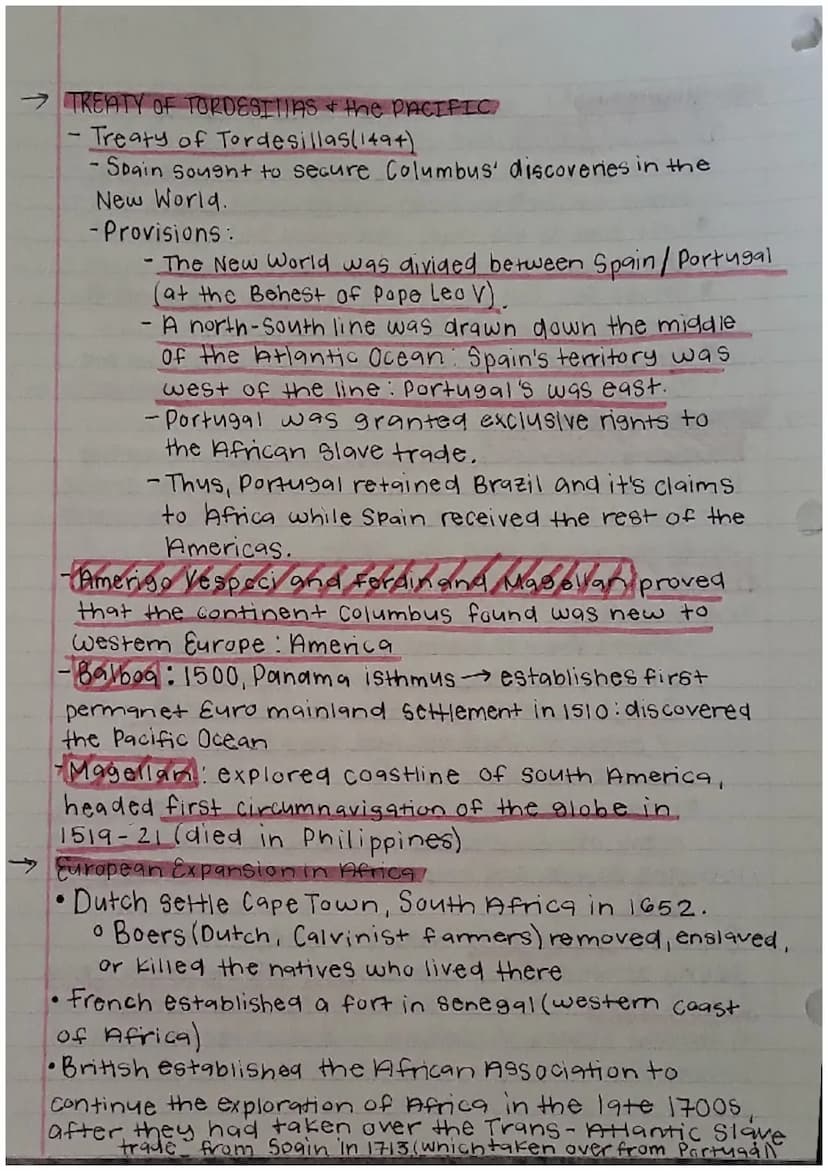 → TREATY OF TORDESILLAS & the PACIFIC
- Treaty of Tordesillas(1494)
- Spain sought to secure Columbus' discoveries in the
New World.
- Provisions:
- The New World was divided between Spain/Portugal
(at the Behest of Pope Leo V).
- A north-south line was drawn down the middle
of the Atlantic Ocean: Spain's territory was
west of the line: Portugal's was east.
- Portugal was granted exclusive rights to
the African slave trade.
- Thus, Portugal retained Brazil and it's claims
to Africa while Spain received the rest of the
Americas.
- Amerigo Vespuci and Ferdinand Magellan proved
that the continent Columbus found was new to
western Europe: America
- Balboa: 1500, Panama isthmus → establishes first
permanet Euro mainland settlement in 1510: discovered
the Pacific Ocean
- Magellan: explored coastline of South America,
headed first circumnavigation of the globe in
1519-21 (died in Philippines)
→ European Expansion in Africa
• Dutch settle Cape Town, South Africa in 1652.
o Boers(Dutch, Calvinist farmers) removed, enslaved,
or killed the natives who lived there
• French established a fort in Senegal(western coast
of Africa)
• British established the African Association to
continue the exploration of Africa in the late 1700s,
after they had taken over the Trans-Atlantic Slave
trade from Spain in 1713(which taken over from Portugal)